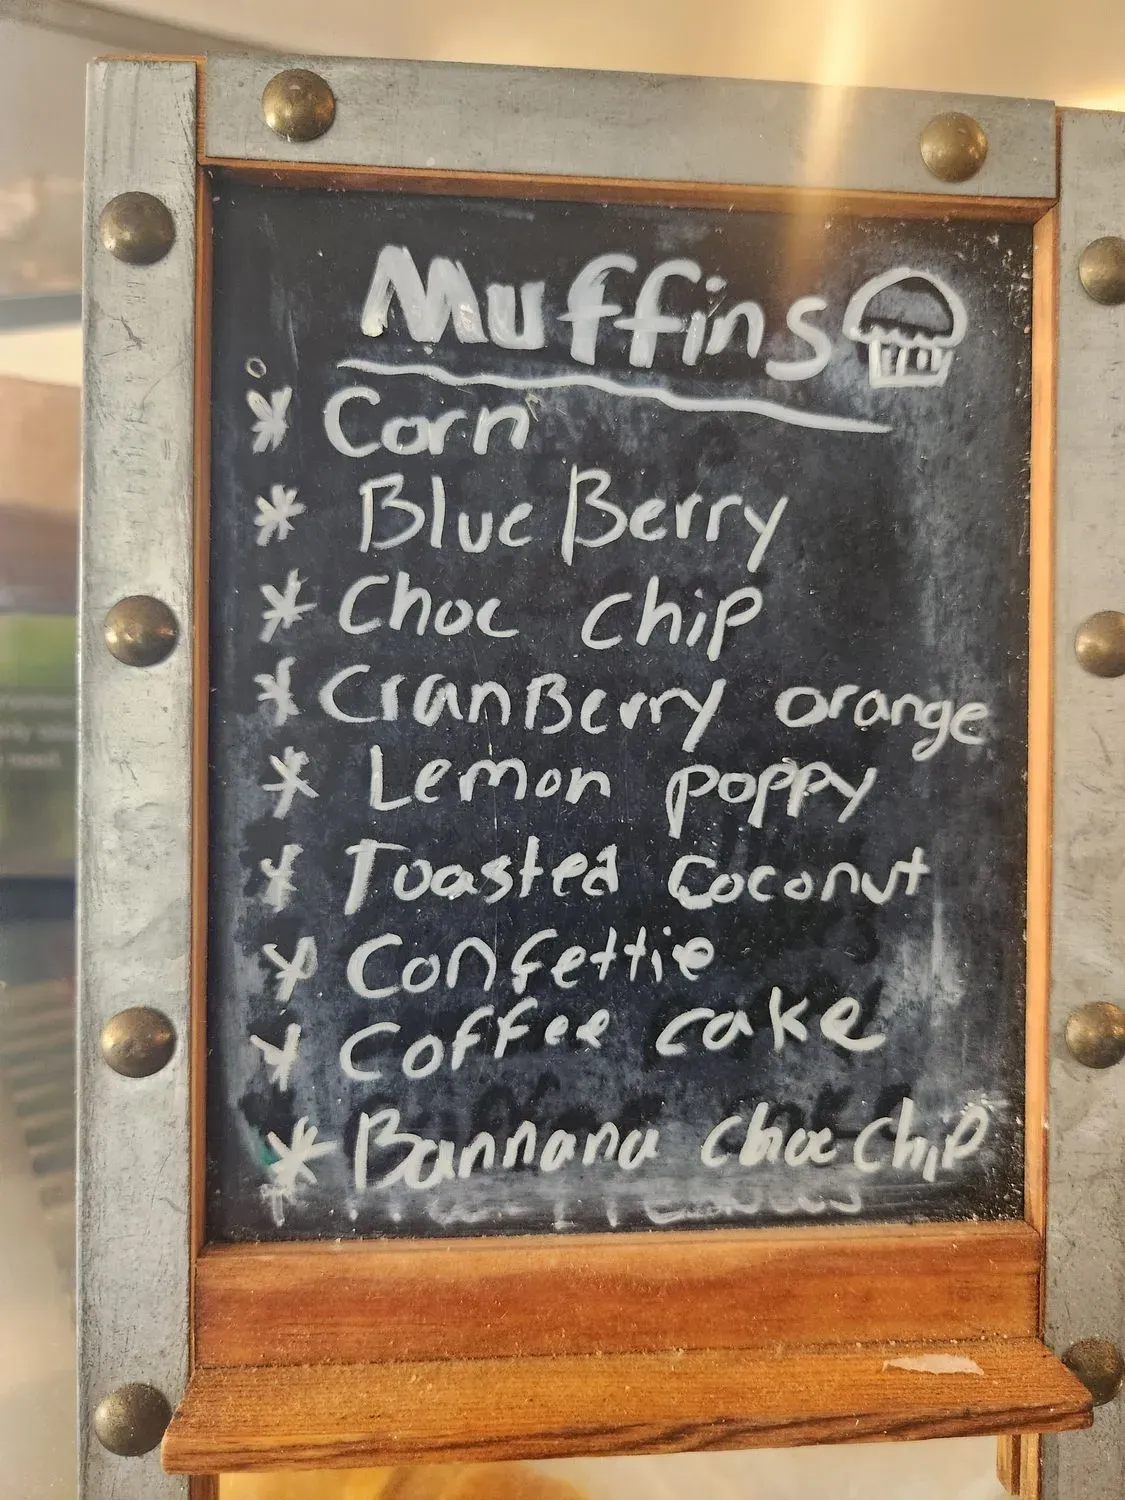 Muffins
* Corn
* BlueBerry
* Choc chip
* CranBerry orange
* Lemon poppy
* Toasted Coconut
* Confettie
* Coffee cake
* Bannana choc chip